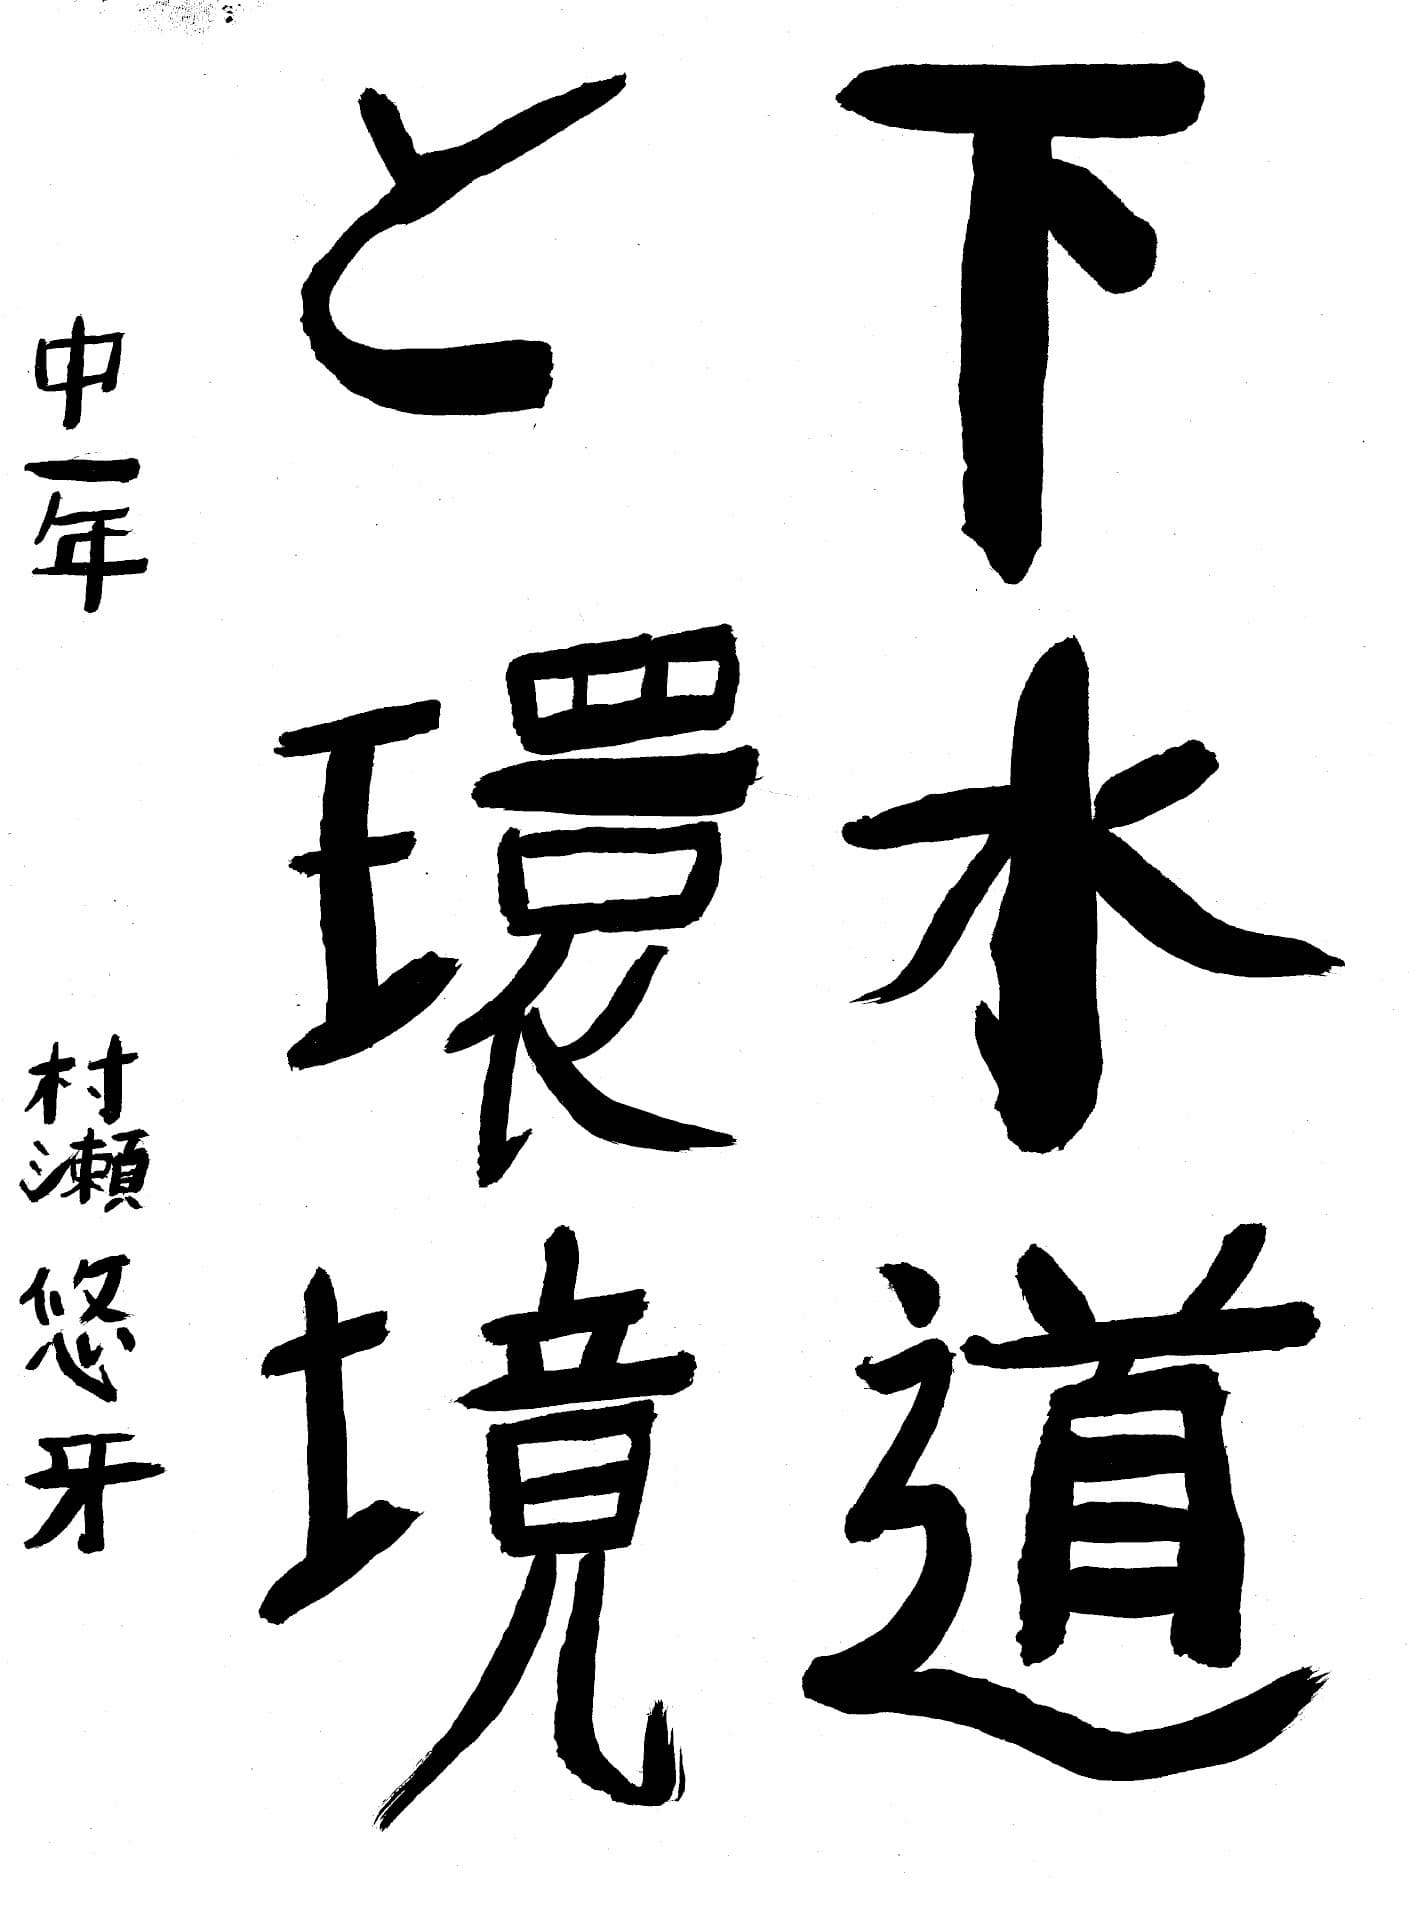 下水道
と環境
中一年 村瀬悠牙